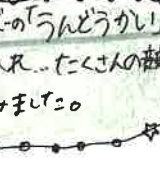 の「うんどうかい
れ...たくさんの
ました。